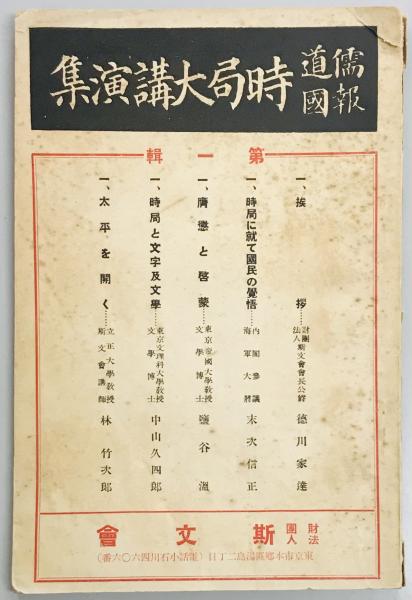 儒道報國
時局大講演集
第一輯
一、挨拶……財團法人斯文會會長公爵 德川家達
一、時局に就て國民の覺悟……內閣參議 海軍大將 末次信正
一、膺懲と啓蒙……東京帝國大學教授 文學博士 鹽谷溫
一、時局と文字及文學……東京文理科大學教授 文學博士 中山久四郎
一、太平を開く……立正大學教授 斯文會講師 林竹次郎
財團法人 斯文會
東京市本鄕區湯島二丁目(電話小石川四六〇六番)